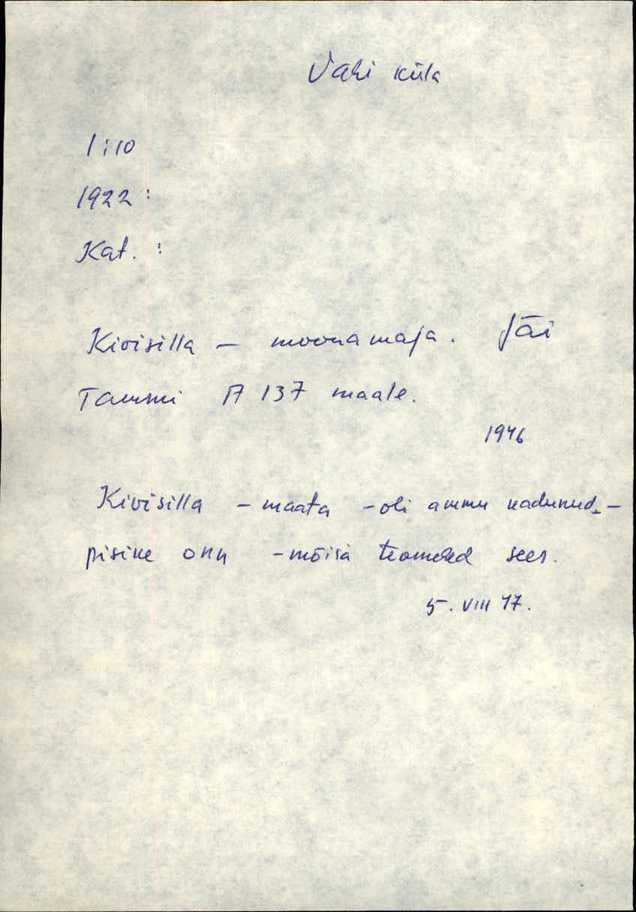 Vahi küla
1:10
1922:
Kat. :
Kivisilla – moonamaja. Jäi
Tammi A 137 maale.
1946
Kivisilla – maata – oli ammu kadunud. –
pisike onn – mõisa teomehed sees.
5. VIII 47.